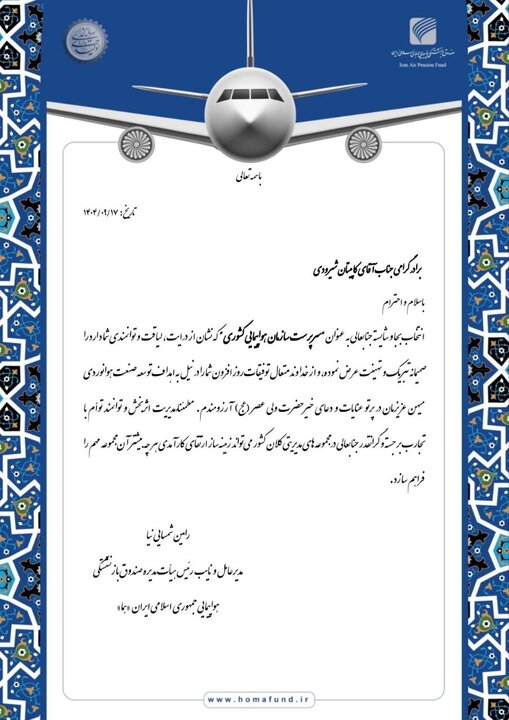 صندوق بازنشستگی هواپیمایی جمهوری اسلامی ایران
Iran Air Pension Fund
باسمه تعالی
تاریخ: ۱۴۰۴/۰۹/۱۷
برادر گرامی جناب آقای کاپیتان شیرودی
باسلام و احترام
انتخاب بجا و شایسته جنابعالی به عنوان "سرپرست سازمان هواپیمایی کشوری" که نشان از درایت، لیاقت و توانمندی شما دارد را
صمیمانه تبریک و تهنیت عرض نموده، و از خداوند متعال توفیقات روز افزون شما را در نیل به اهداف توسعه صنعت هوانوردی
میهن عزیزمان در پرتو عنایات و دعای خیر حضرت ولی عصر (عج) آرزومندم. مطمئنا مدیریت اثربخش و توانمند توأم با
تجارب برجسته و گرانقدر جنابعالی در مجموعه های مدیریتی کلان کشور می تواند زمینه ساز ارتقای کارآمدی هر چه بیشتر آن مجموعه مهم را
فراهم سازد.
رامین شمسایی نیا
مدیرعامل و نایب رئیس هیأت مدیره صندوق بازنشستگی
هواپیمایی جمهوری اسلامی ایران «هما»
www.homafund.ir